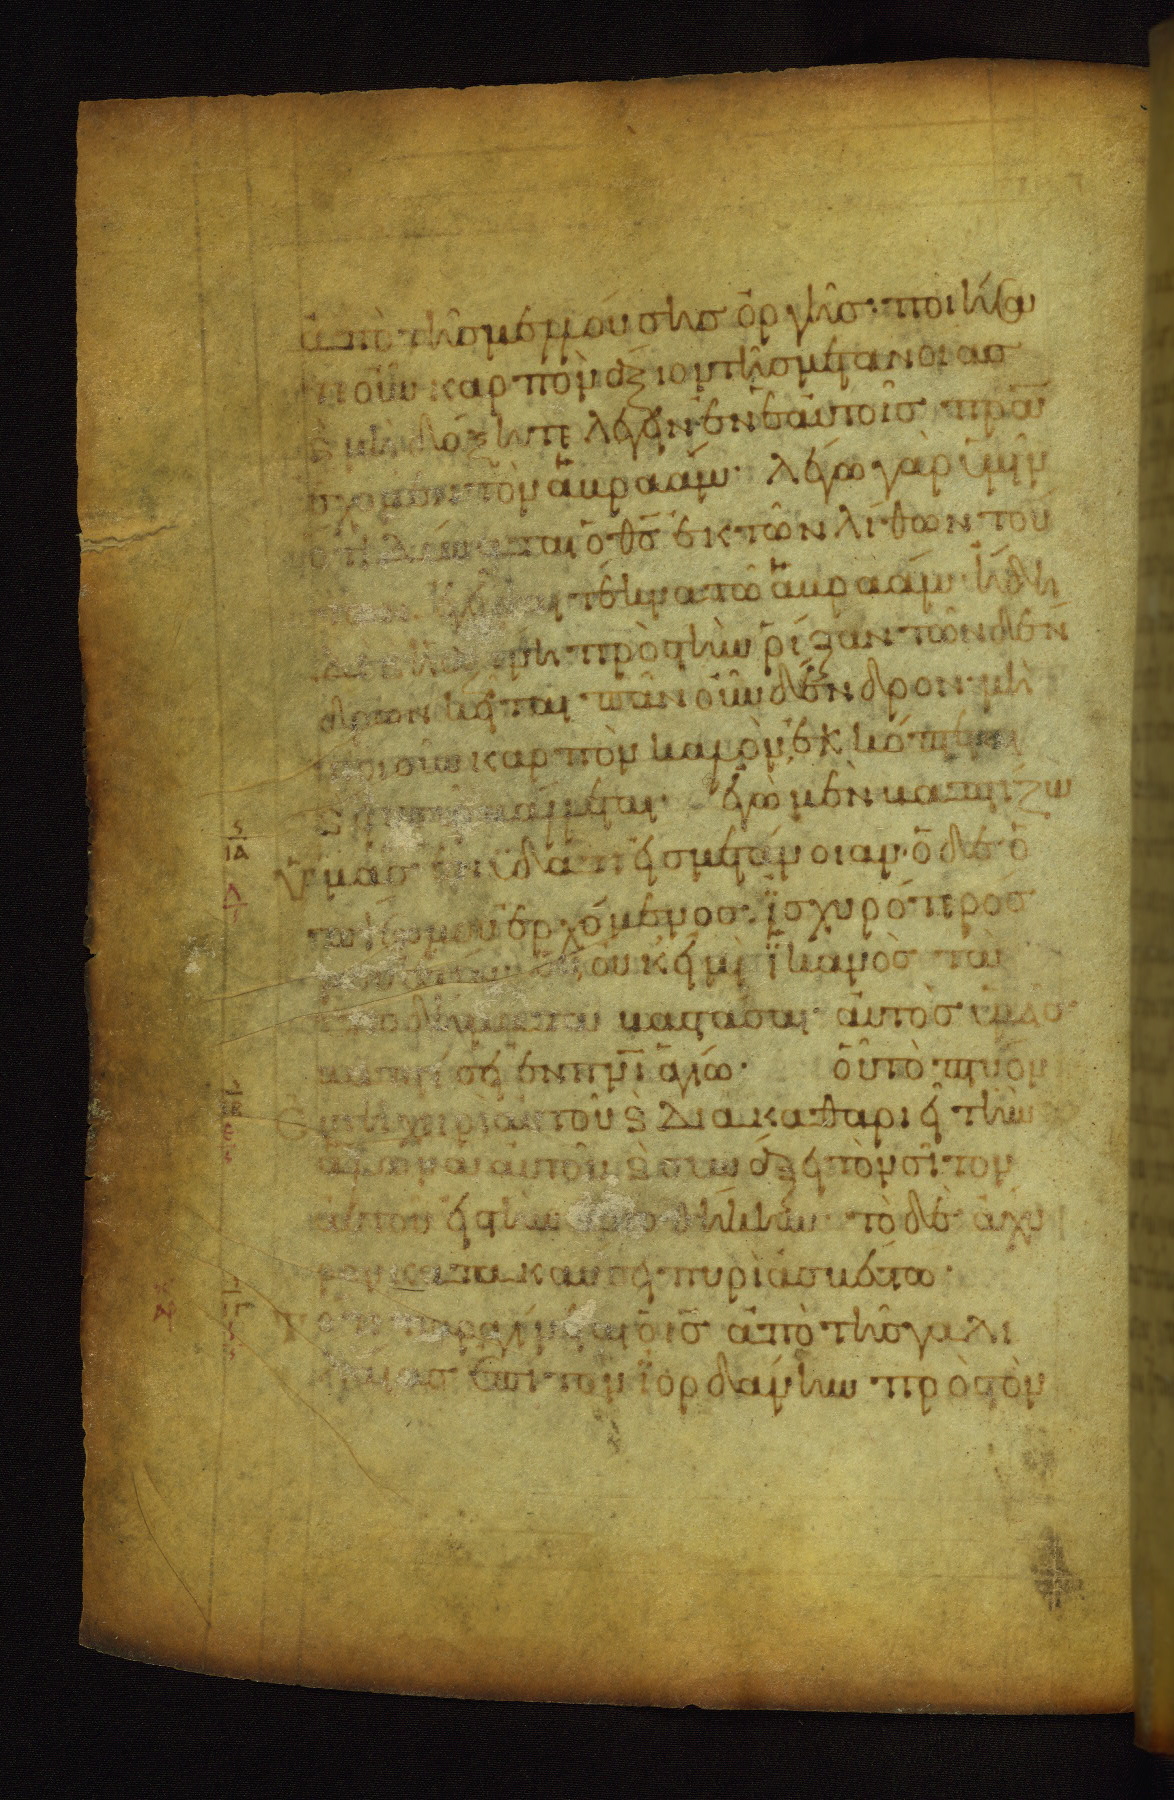 ἀπὸ τῆς μελλούσης ὀργῆς· ποιήσα
τε οὖν καρπὸν ἄξιον τῆς μετανοίας
ϗ μὴ δόξητε λέγειν ἐν ἑαυτοῖς πρ̅α
ἔχομεν τὸν ἀβραάμ· λέγω γὰρ ὑμῖν
ὅτι δύναται ὁ θ̅ς ἐκ τῶν λίθων τού
των ἐγεῖραι τέκνα τῶ ἀβραάμ· ἤδη
δὲ ϗ ἡ ἀξίνη πρὸς τὴν ῥίζαν τῶν δέν
δρων κεῖται· πᾶν οὖν δένδρον μὴ
ποιοῦν καρπὸν καλὸν ἐκκόπτεται
ϗ εἰς πῦρ βάλλεται· ἐγὼ μὲν βαπτίζω
ὑμᾶς ἐν ὕδατι εἰς μετάνοιαν· ὁ δὲ ὀ
πίσω μου ἐρχόμενος ἰσχυρότερός
μου ἐστίν· οὗ οὐκ εἰμὶ ἱκανὸς τὰ
ὑποδήματα βαστάσαι· αὐτὸς ὑμᾶς
βαπτίσει ἐν π̅ν̅ι ἁγίω· οὗ τὸ πτύον
ἐν τῇ χειρὶ αὐτοῦ ϗ διακαθαριεῖ τὴν
ἅλωνα αὐτοῦ ϗ συνάξει τὸν σῖτον
αὐτοῦ εἰς τὴν ἀποθήκην· τὸ δὲ ἄχυ
ρον κατακαύσει πυρὶ ἀσβέστω·
Τότε παραγίνεται ὁ ι̅ς ἀπὸ τῆς γαλι
λαίας ἐπὶ τὸν ἰορδάνην πρὸς τὸν
ϛ
ΙΑ
Λ
Ι